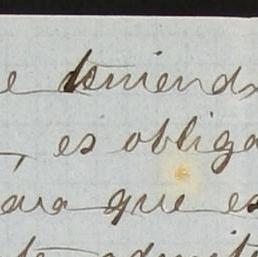 e teniendo
, es obliga
ara que es